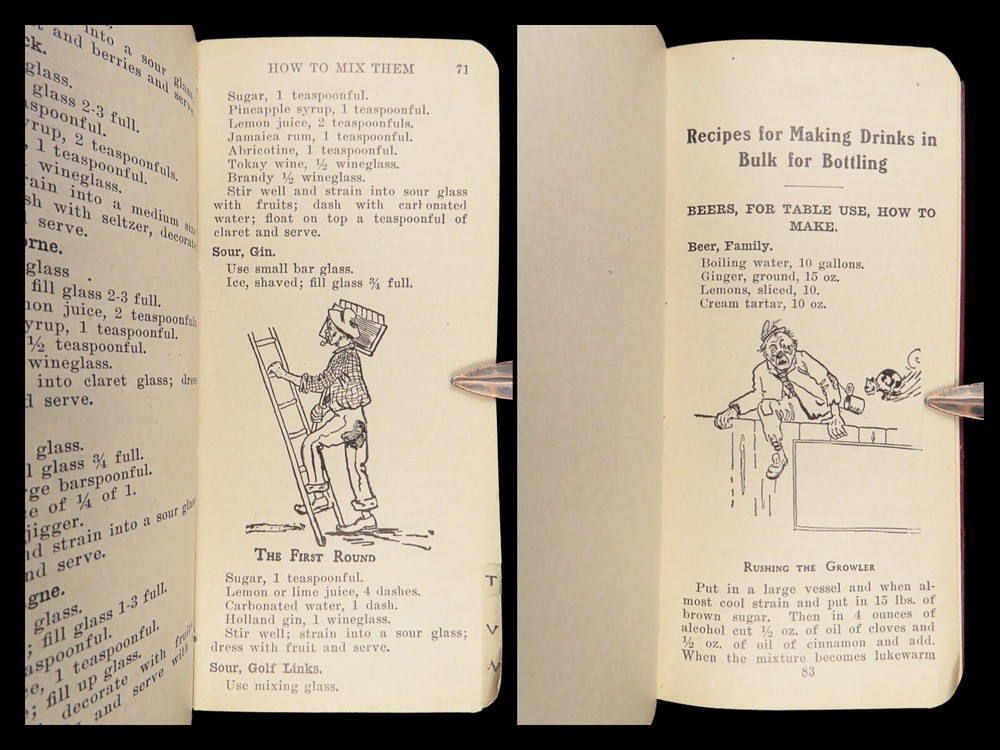 into a sour glass
and berries and serve.
ck.
glass.
glass 2-3 full.
spoonful.
yrup, 2 teaspoonfuls.
, 1 teaspoonful.
wineglass.
ain into a medium size
sh with seltzer, decorate
serve.
orne.
glass .
fill glass 2-3 full.
non juice, 2 teaspoonfuls
yrup, 1 teaspoonful.
½ teaspoonful.
wineglass.
into claret glass; dres
d serve.
glass.
l glass ¾ full.
ge barspoonful.
e of ¼ of 1.
jigger.
nd strain into a sour glass
nd serve.
gne.
glass.
; fill glass 1-3 full.
aspoonful.
e, 1 teaspoonful.
; fill up glass.
decorate with fruits
and serve with
HOW TO MIX THEM 71
Sugar, 1 teaspoonful.
Pineapple syrup, 1 teaspoonful.
Lemon juice, 2 teaspoonfuls.
Jamaica rum, 1 teaspoonful.
Abricotine, 1 teaspoonful.
Tokay wine, ½ wineglass.
Brandy ½ wineglass.
Stir well and strain into sour glass
with fruits; dash with carbonated
water; float on top a teaspoonful of
claret and serve.
Sour, Gin.
Use small bar glass.
Ice, shaved; fill glass ¾ full.
THE FIRST ROUND
Sugar, 1 teaspoonful.
Lemon or lime juice, 4 dashes.
Carbonated water, 1 dash.
Holland gin, 1 wineglass.
Stir well; strain into a sour glass;
dress with fruit and serve.
Sour, Golf Links.
Use mixing glass.
T
V
W
Recipes for Making Drinks in
Bulk for Bottling
BEERS, FOR TABLE USE, HOW TO
MAKE.
Beer, Family.
Boiling water, 10 gallons.
Ginger, ground, 15 oz.
Lemons, sliced, 10.
Cream tartar, 10 oz.
RUSHING THE GROWLER
Put in a large vessel and when al-
most cool strain and put in 15 lbs. of
brown sugar. Then in 4 ounces of
alcohol cut ½ oz. of oil of cloves and
½ oz. of oil of cinnamon and add.
When the mixture becomes lukewarm
83